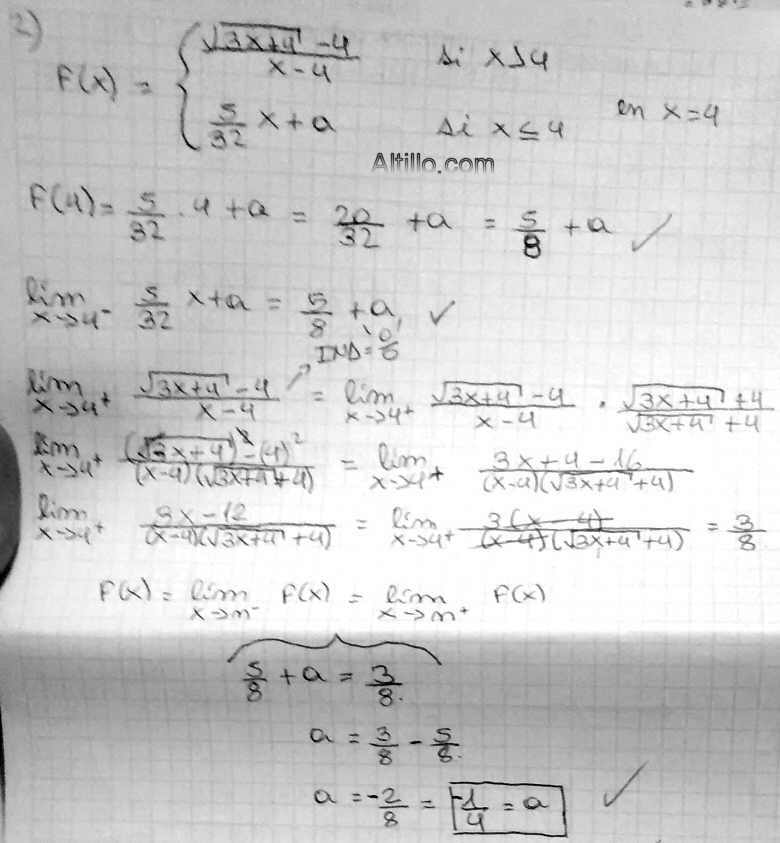 2)
F(x) = { (√(3x+4) - 4)/(x - 4) si x > 4
5/32 x + a si x ≤ 4 en x=4
Altillo.com
F(4) = 5/32 . 4 + a = 20/32 + a = 5/8 + a ✓
lim x→4⁻ 5/32 x + a = 5/8 + a ✓
IND = 0/0
lim x→4⁺ (√(3x+4) - 4)/(x - 4) = lim x→4⁺ (√(3x+4) - 4)/(x - 4) . (√(3x+4) + 4)/(√(3x+4) + 4)
lim x→4⁺ ((√(3x+4))² - (4)²)/((x-4)(√(3x+4) + 4)) = lim x→4⁺ (3x + 4 - 16)/((x-4)(√(3x+4) + 4))
lim x→4⁺ (3x - 12)/((x-4)(√(3x+4) + 4)) = lim x→4⁺ 3(x - 4)/((x-4)(√(3x+4) + 4)) = 3/8
F(x) = lim x→m⁻ F(x) = lim x→m⁺ F(x)
5/8 + a = 3/8.
a = 3/8 - 5/8.
a = -2/8 = -1/4 = a ✓